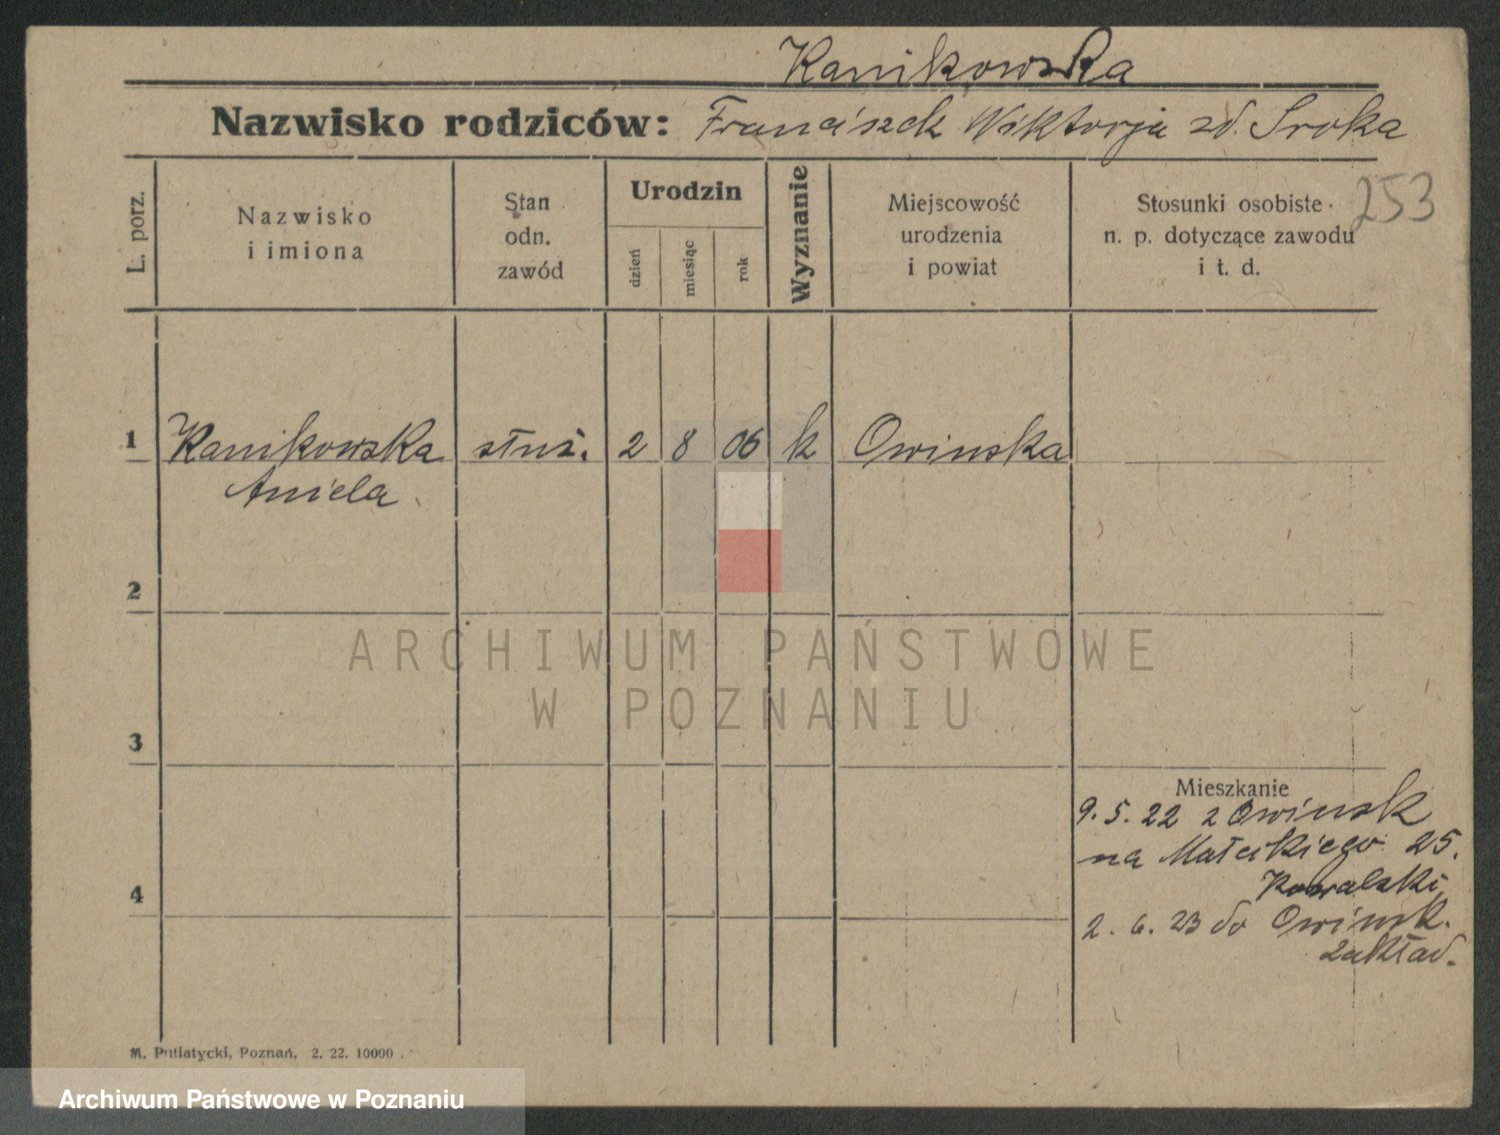 Kanikowska
Nazwisko rodziców: Franciszek Wiktorja zd. Sroka
253
L. porz.
Nazwisko
i imiona
Stan
odn.
zawód
Urodzin
dzień
miesiąc
rok
Wyznanie
Miejscowość
urodzenia
i powiat
Stosunki osobiste
n. p. dotyczące zawodu
i t. d.
1 Kanikowska służ. 2 8 06 k Owinska
Aniela
2
ARCHIWUM PAŃSTWOWE
W POZNANIU
3
Mieszkanie
9. 5. 22 z Owinsk
na Małeckiego 25.
Kowalski
4
2. 6. 23 do Owinsk.
zakład.
M. Putiatycki, Poznań, 2. 22. 10000
Archiwum Państwowe w Poznaniu